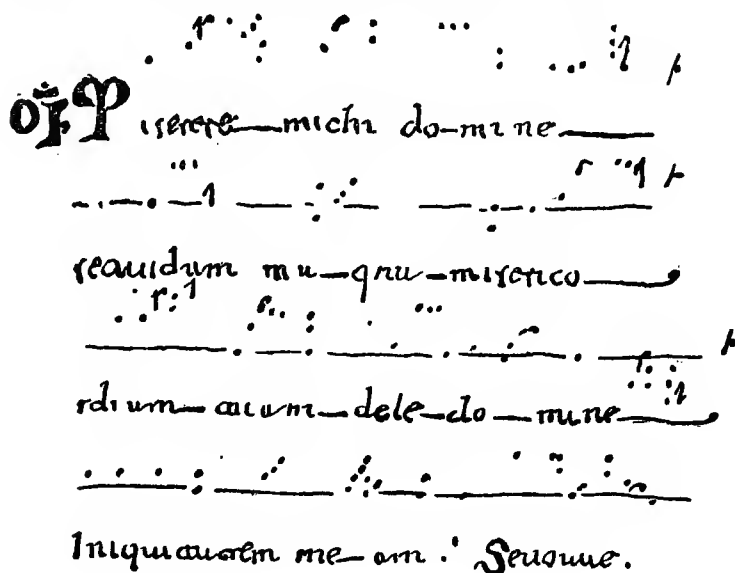 OF Miserere—michi do-mi ne—
secundum ma—gna—miserico—
rdiam—tuam—dele—do—mine—
Iniquitatem me—am .' Seuouae.